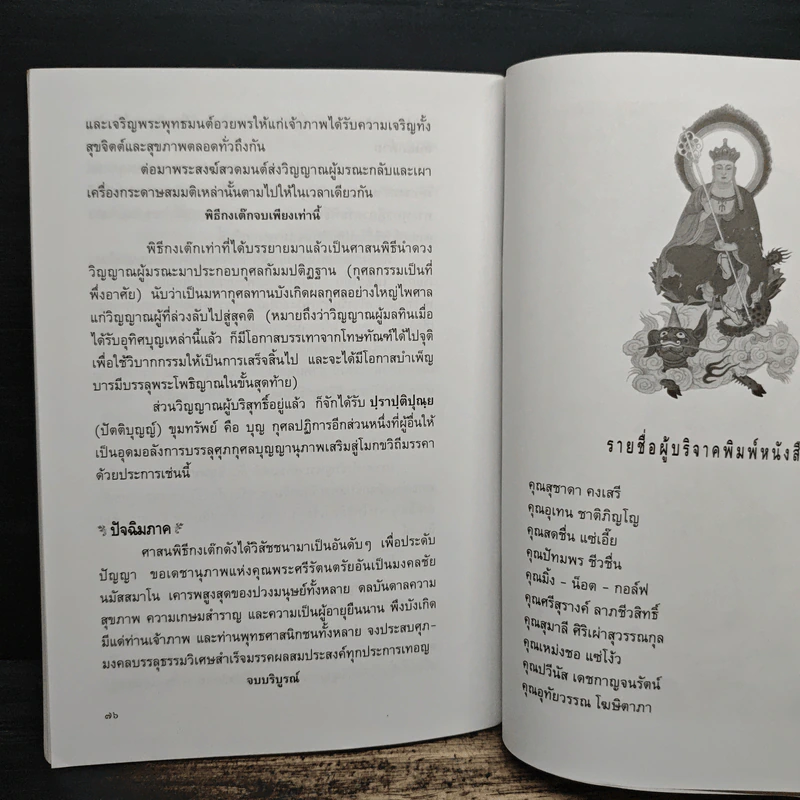 และเจริญพระพุทธมนต์อวยพรให้แก่เจ้าภาพได้รับความเจริญทั้ง
สุขจิตต์และสุขภาพตลอดทั่วถึงกัน
ต่อมาพระสงฆ์สวดมนต์ส่งวิญญาณผู้มรณะกลับและเผา
เครื่องกระดาษสมมติเหล่านั้นตามไปให้ในเวลาเดียวกัน
พิธีกงเต๊กจบเพียงเท่านี้
พิธีกงเต๊กเท่าที่ได้บรรยายมาแล้วเป็นศาสนพิธีนำดวง
วิญญาณผู้มรณะมาประกอบกุศลกัมมปติฏฐาน (กุศลกรรมเป็นที่
พึ่งอาศัย) นับว่าเป็นมหากุศลทานบังเกิดผลกุศลอย่างใหญ่ไพศาล
แก่วิญญาณผู้ที่ล่วงลับไปสู่สุคติ (หมายถึงว่าวิญญาณผู้มลทินเมื่อ
ได้รับอุทิศบุญเหล่านี้แล้ว ก็มีโอกาสบรรเทาจากโทษทัณฑ์ได้ไปจุติ
เพื่อใช้วิบากกรรมให้เป็นการเสร็จสิ้นไป และจะได้มีโอกาสบำเพ็ญ
บารมีบรรลุพระโพธิญาณในขั้นสุดท้าย)
ส่วนวิญญาณผู้บริสุทธิ์อยู่แล้ว ก็จักได้รับ ปฺราปฺติปุณฺย
(ปัตติบุญญ์) ขุมทรัพย์ คือ บุญ กุศลปฏิการอีกส่วนหนึ่งที่ผู้อื่นให้
เป็นอุดมอลังการบรรลุศุภกุศลบุญญานุภาพเสริมสู่โมกขวิถีมรรคา
ด้วยประการเช่นนี้
ปัจฉิมภาค
ศาสนพิธีกงเต๊กดังได้วิสัชชนามาเป็นอันดับๆ เพื่อประดับ
ปัญญา ขอเดชานุภาพแห่งคุณพระศรีรัตนตรัยอันเป็นมงคลชัย
นมัสสมาโน เคารพสูงสุดของปวงมนุษย์ทั้งหลาย ดลบันดาลความ
สุขภาพ ความเกษมสำราญ และความเป็นผู้อายุยืนนาน พึงบังเกิด
มีแด่ท่านเจ้าภาพ และท่านพุทธศาสนิกชนทั้งหลาย จงประสบศุภ-
มงคลบรรลุธรรมวิเศษสำเร็จมรรคผลสมประสงค์ทุกประการเทอญ
จบบริบูรณ์
๗๖
รายชื่อผู้บริจาคพิมพ์หนังสื
คุณสุชาดา คงเสรี
คุณอุเทน ชาติภิญโญ
คุณสดชื่น แซ่เอี๊ย
คุณปัทมพร ชีวชื่น
คุณมิ้ง - น็อต - กอล์ฟ
คุณศรีสุรางค์ ลาภชีวสิทธิ์
คุณสุมาลี ศิริเผ่าสุวรรณกุล
คุณเหม่งชอ แซ่โง้ว
คุณปวีนัส เดชกาญจนรัตน์
คุณอุทัยวรรณ โฆษิตาภา